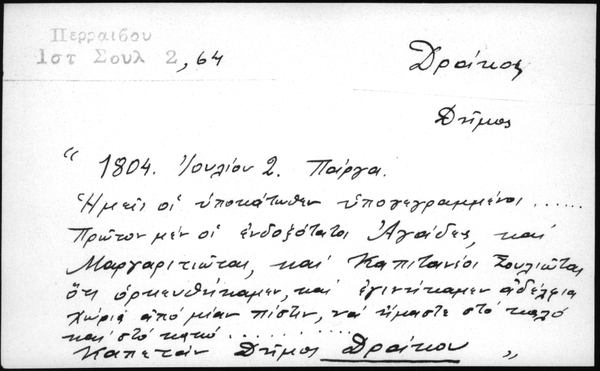 Περραιβου
Ιστ Σουλ 2, 64
Δράκος
Δῆμος
" 1804. Ἰουλίου 2. Πάργα.
Ἡμεῖς οἱ ὑποκάτωθεν ὑπογεγραμμένοι ......
Πρῶτον μέν οἱ ἐνδοξότατοι Ἀγάδες, καί
Μαργαριτιῶται, καί Καπιτανέοι Σουλιῶται
ὅτι ὁρκευθήκαμεν, καί ἐγινήκαμεν ἀδέλφια
χωρίς ἀπό μίαν πίστιν, νά ἤμαστε στό καλό
καί στό κακό ...........
Καπετάν Δῆμος Δράκου "